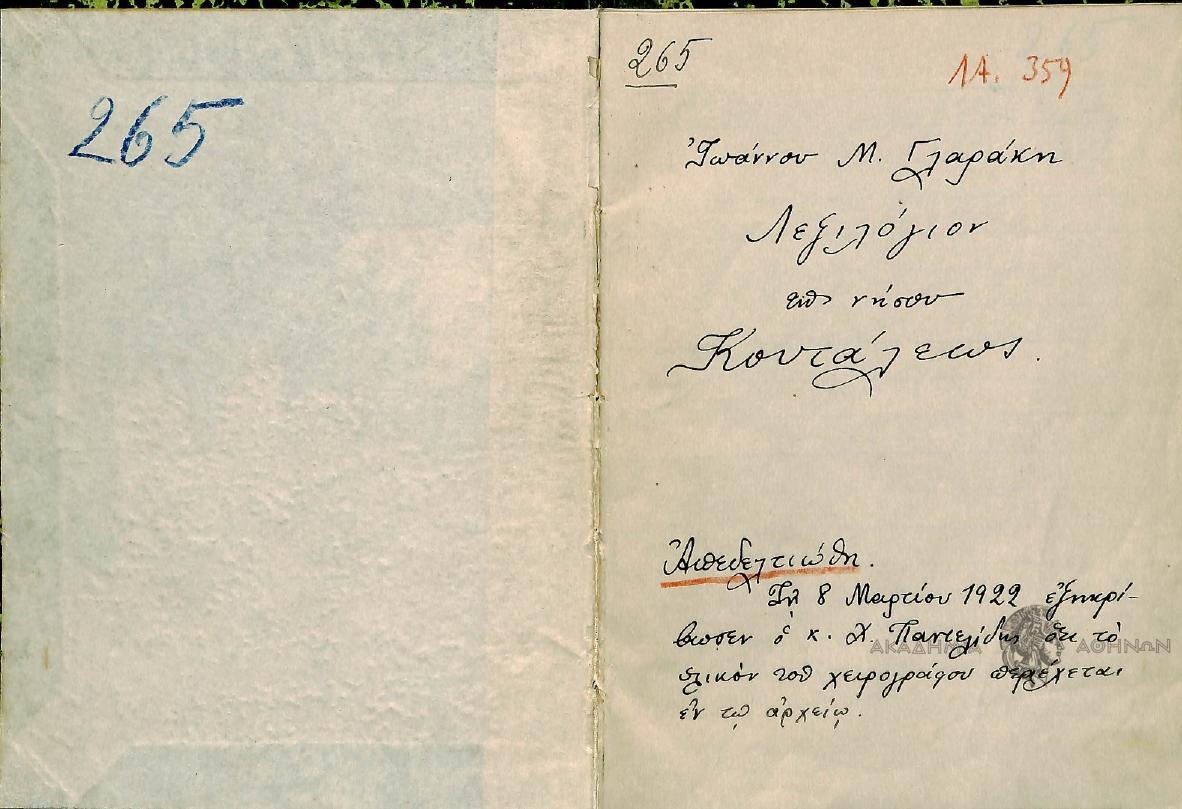 265
265
1Α. 359
Ἰωάννου Μ. Γλαράκη
Λεξιλόγιον
τῆς νήσου
Κουτάλεως.
Ἀπεδελτιώθη.
Τῇ 8 Μαρτίου 1922 ἐξηκρί-
βωσεν ὁ κ. Χ. Παντελίδης ὅτι τὸ
ὑλικὸν τοῦ χειρογράφου περιέχεται
ἐν τῷ ἀρχείῳ.
ΑΚΑΔΗΜΙΑ ΑΘΗΝΩΝ